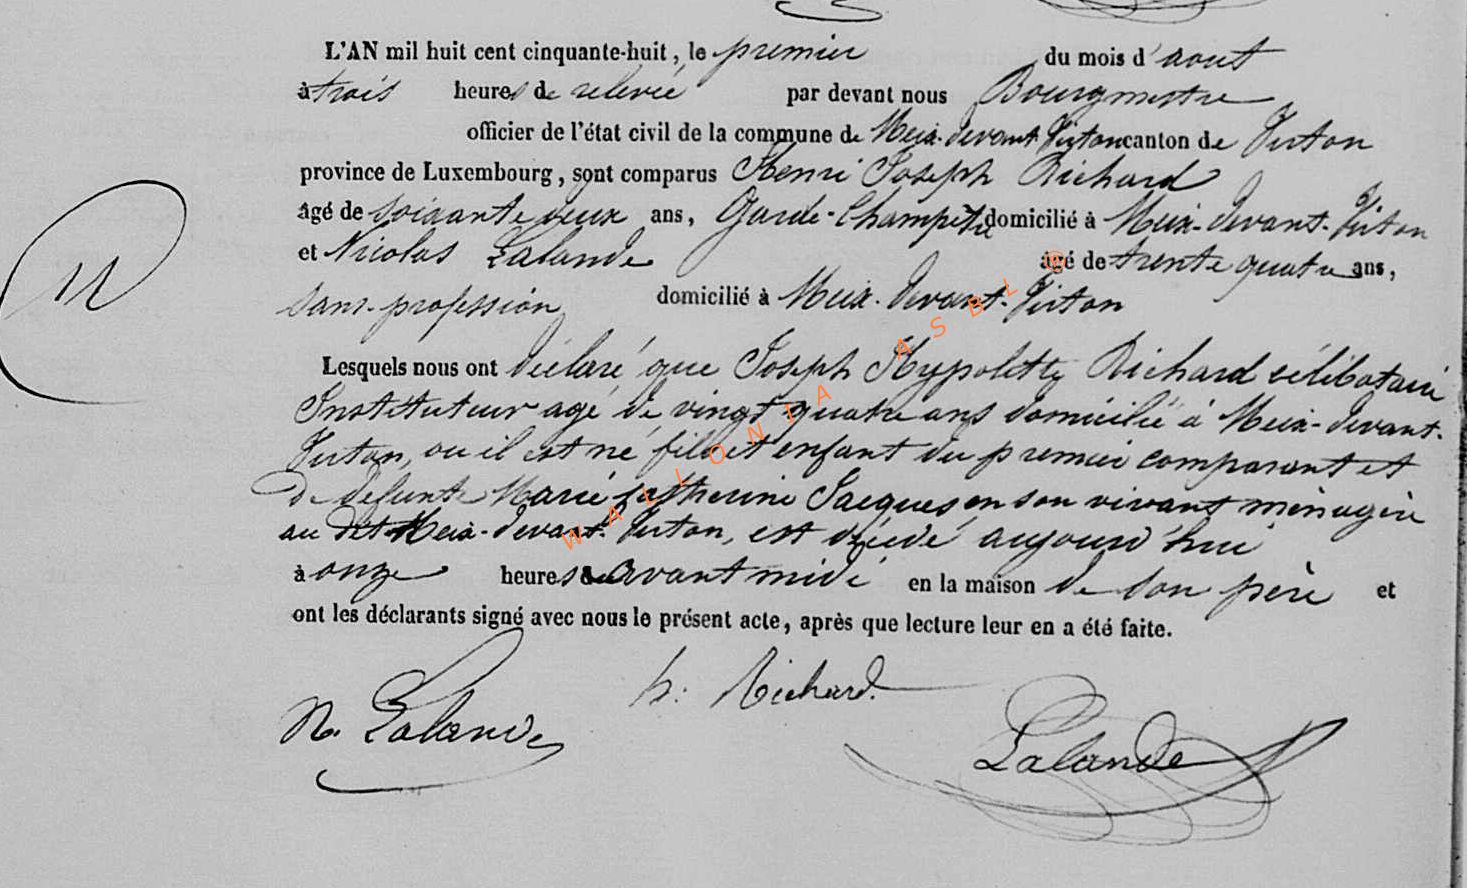 L'AN mil huit cent cinquante-huit, le premier du mois d'aout
à trois heures de relevée par devant nous Bourgmestre
officier de l'état civil de la commune de Meix-devant-Virton canton de Virton
province de Luxembourg, sont comparus Henri Joseph Richard
âgé de soixante deux ans, Garde-Champêtre domicilié à Meix-devant-Virton
et Nicolas Lalande âgé de trente quatre ans,
sans profession domicilié à Meix-devant-Virton
Lesquels nous ont déclaré que Joseph Hypolitte Richard célibataire
Instituteur agé de vingt quatre ans domicilié à Meix-devant-
Virton, où il est né, fils et enfant du premier comparant et
de défunte Marie Catherine Jacques en son vivant ménagère
au dit Meix-devant-Virton, est décédé aujourd'hui
à onze heures avant midi en la maison de son père et
ont les déclarants signé avec nous le présent acte, après que lecture leur en a été faite.
h. Richard.
N. Lalande
Lalande
WALLONIA ASBL ®